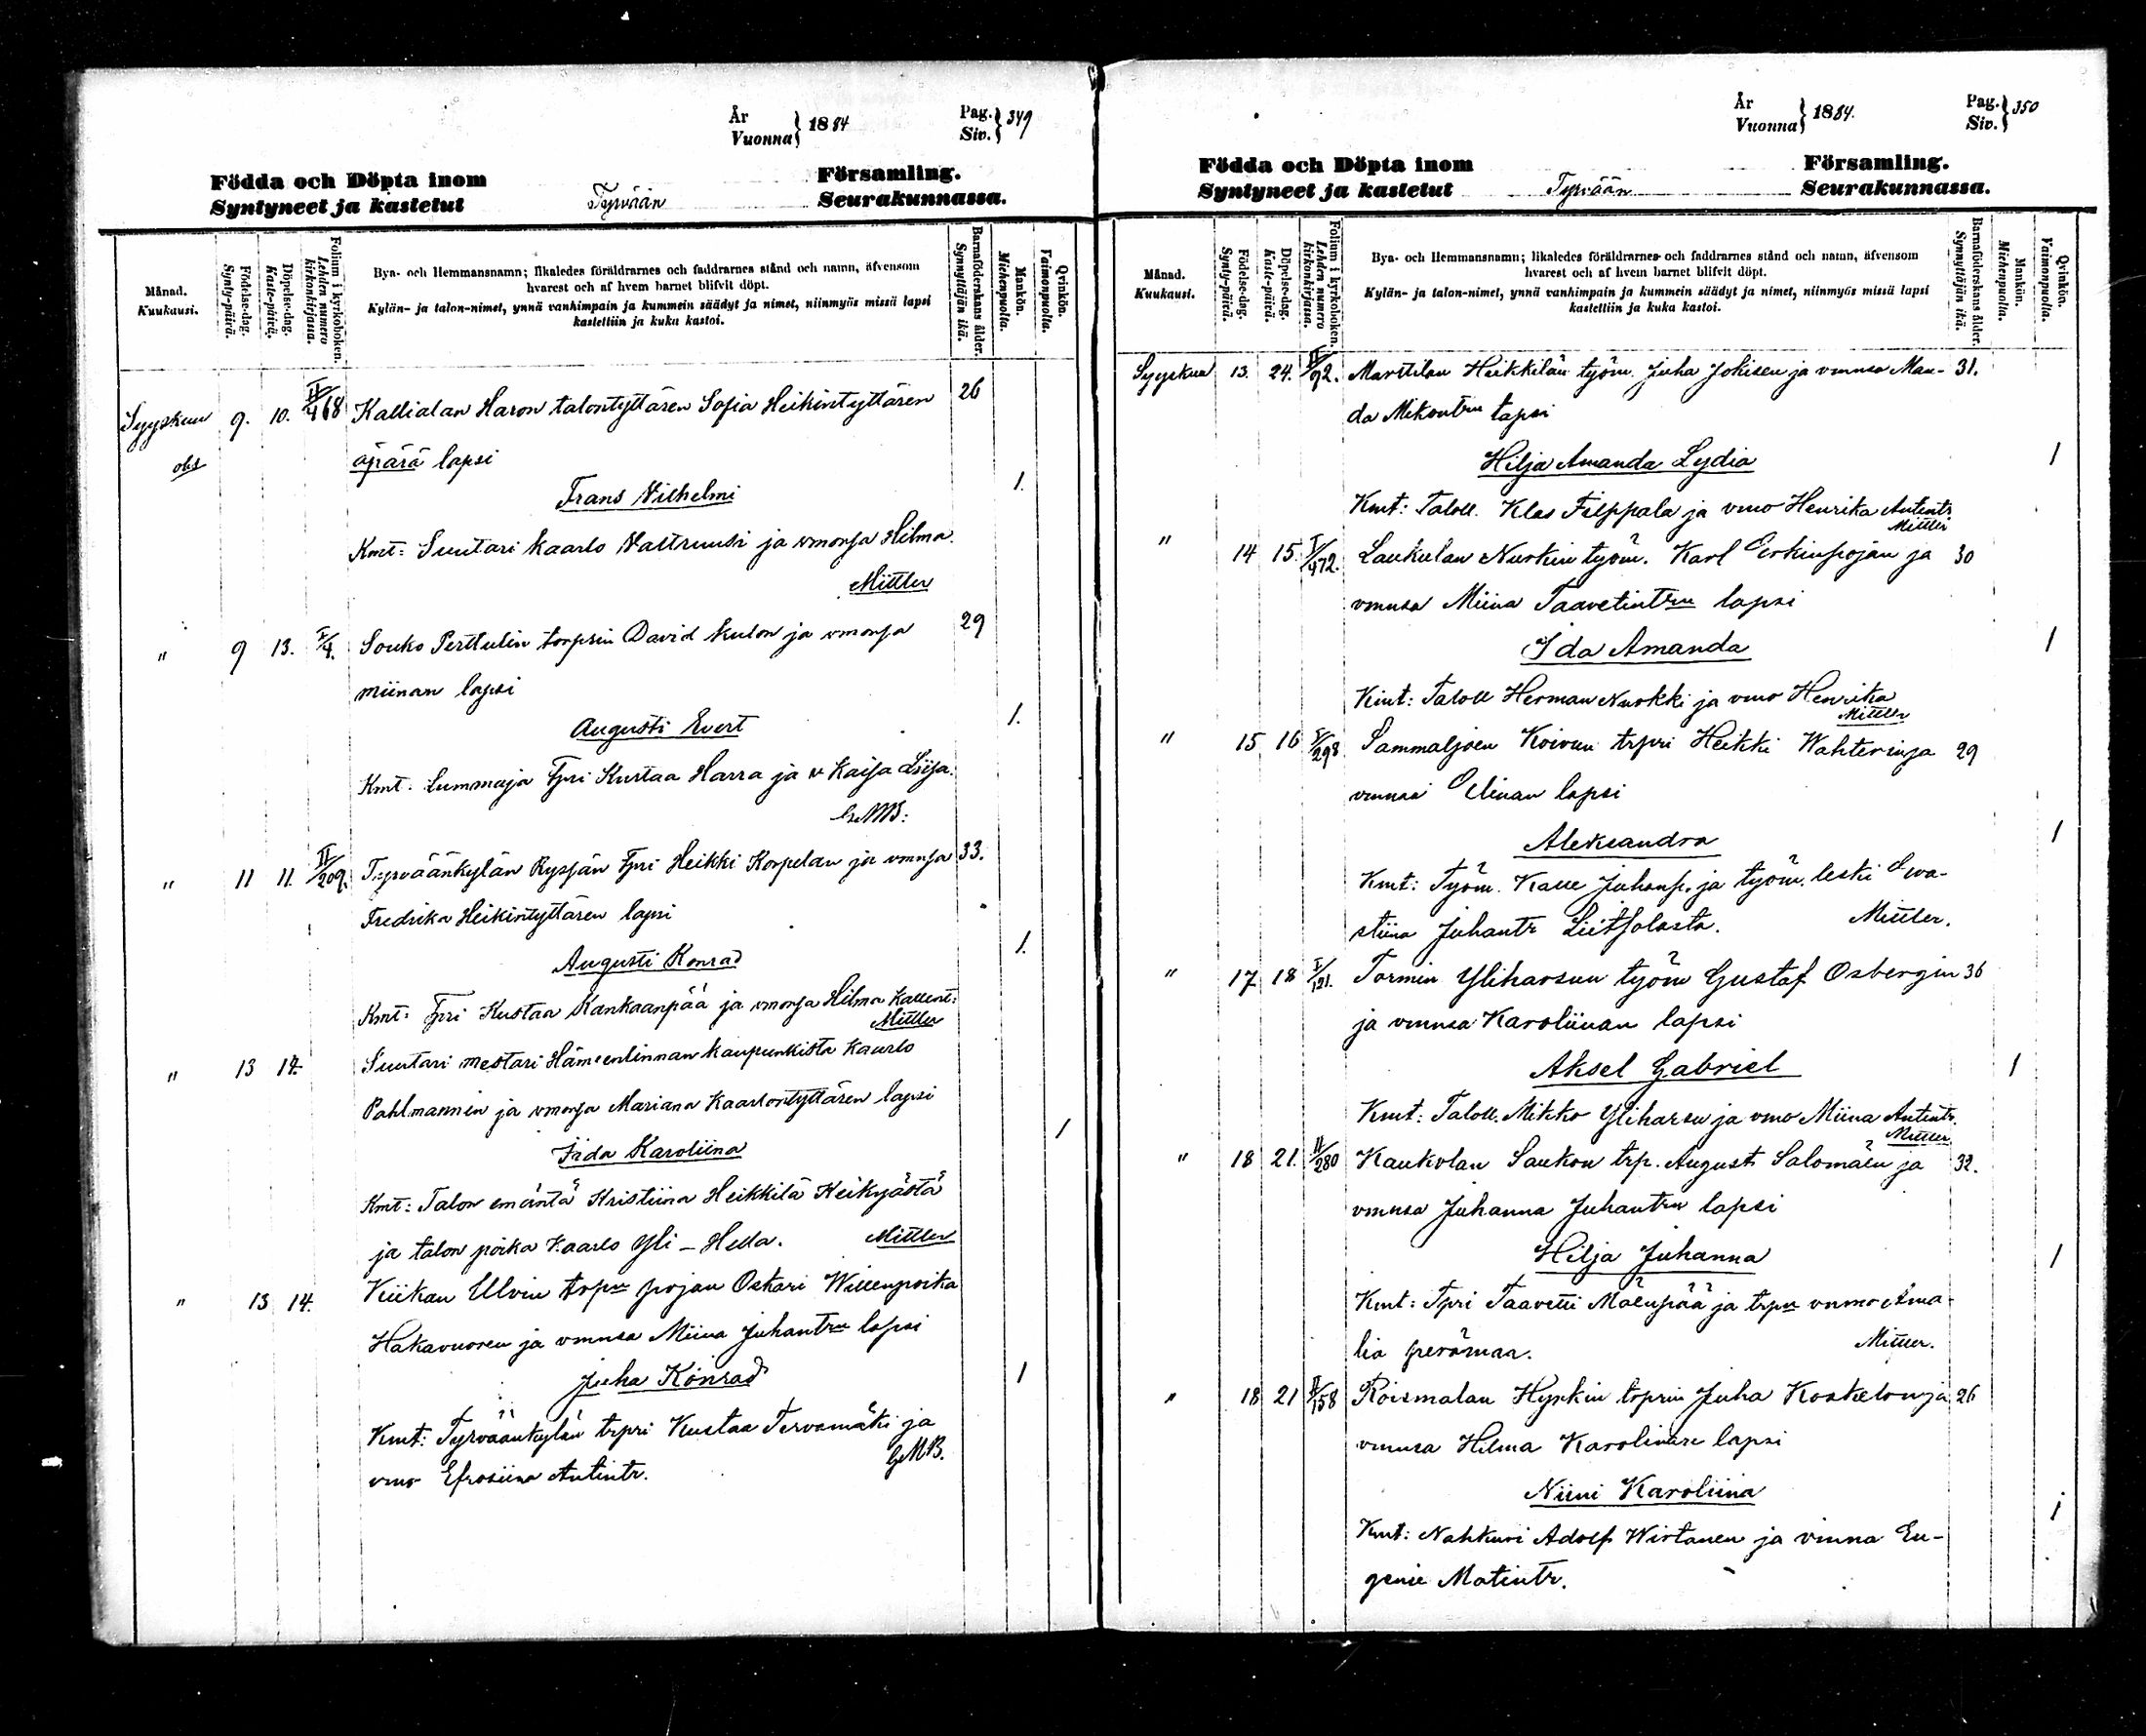 År
Vuonna} 1884
Pag.
Siv.} 349
Födda och Döpta inom Församling.
Syntyneet ja kastetut Tyrvään Seurakunnassa.
Månad.
Kuukausi.
Födelse-dag.
Synty-päivä.
Döpelse-dag.
Kaste-päivä.
Folium i kyrkoboken.
Lehden numero kirkonkirjassa.
Bya- och Hemmansnamn; likaledes föräldrarnes och faddrarnes stånd och namn, äfvensom
hvarest och af hvem barnet blifvit döpt.
Kylän- ja talon-nimet, ynnä vanhimpain ja kummein säädyt ja nimet, niinmyös missä lapsi
kastettiin ja kuka kastoi.
Barnaföderskans ålder.
Synnyttäjän ikä.
Mankön.
Miehenpuolia.
Qvinkön.
Vaimonpuolia.
Syyskuu 9. 10. II/468 Kallialan Haron talontyttären Sofia Heikintyttären 26
obs äpärä lapsi
Frans Vilhelmi 1.
Kmt: Suutari Kaarlo ja vmonsa Hilma.
Mittler
" 9 13. I/4. Souko Perttulin torpsin David Kulon ja vmonsa 29
miinan lapsi
Augusti Evert 1.
Kmt: Lummaja Tpri Kustaa Harra ja v Kaisa Liisa.
G.M.B:
" 11 11. II/209. Tyrväänkylän Ryssän Tpri Heikki Korpelan ja vmonsa 33.
Fredrika Heikintyttären lapsi
Augusti Konrad 1.
Kmt: Tpri Kustaa Kankaanpää ja vmonsa Hilma Kallent:
Mittler
" 13 14. Suutari mestari Hämeenlinnan kaupunkista Kaarlo
Pahlmannin ja vmonsa Mariana Kaarlontyttären lapsi
Iida Karoliina 1
Kmt: Talon emäntä Kristiina Heikkilä Keikyästä
ja talon poika Kaarlo Yli-Hella. Mittler
" 13 14. Kiikan Ulvin torpn pojan Oskari Willenpoika
Hakavuoren ja vmnsa Miina Juhantrn lapsi
Juha Konrad 1
Kmt: Tyrväänkylän trpri Kustaa Tervamäki ja
vmo Efrosiina Antintr. G.M.B.
År
Vuonna} 1884.
Pag.
Siv.} 350
Födda och Döpta inom Församling.
Syntyneet ja kastetut Tyrvään Seurakunnassa.
Månad.
Kuukausi.
Födelse-dag.
Synty-päivä.
Döpelse-dag.
Kaste-päivä.
Folium i kyrkoboken.
Lehden numero kirkonkirjassa.
Bya- och Hemmansnamn; likaledes föräldrarnes och faddrarnes stånd och namn, äfvensom
hvarest och af hvem barnet blifvit döpt.
Kylän- ja talon-nimet, ynnä vanhimpain ja kummein säädyt ja nimet, niinmyös missä lapsi
kastettiin ja kuka kastoi.
Barnaföderskans ålder.
Synnyttöjän ikä.
Mankön.
Miehenpuolia.
Qvinkön.
Vaimonpuolia.
Syyskuu 13. 24. II/92. Marttilan Heikkilän työm. Juha Jokisen ja vmnsa Man- 31.
da Mikontrn lapsi
Hilja Amanda Lydia 1
Kmt: Taloll. Klas Filppala ja vmo Henrika Antintr
Mittler
" 14 15. I/472. Laukulan Nurkin työm. Karl Erkinpojan ja 30
vmnsa Miina Taavetintrn lapsi
Ida Amanda 1
Kmt: Taloll Herman Nurkki ja vmo Henrika
Mittler
" 15 16 I/298 Sammaljoen Koivun trpri Heikki Wahterin ja 29
vmnsa Elinan lapsi
Aleksandra 1
Kmt: Työm. Kalle Juhanp. ja työm. leski Ewa-
stiina Juhantr Liitsolasta. Mittler.
" 17. 18 I/191. Tormin Yliharsun työm Gustaf Osbergin 36
ja vmnsa Karoliinan lapsi
Aksel Gabriel 1
Kmt: Taloll. Mikko Yliharsu ja vmo Miina Antintr.
Mittler
" 18 21. II/280 Kaukolan Saukon trp. August Salomäen ja 32.
vmnsa Juhanna Juhantrn lapsi
Hilja Juhanna 1
Kmt: Tpri Taavetti Mäenpää ja trpn vmo Ama-
lia Perämaa. Mittler.
" 18 21 II/158 Roismalan Hyrkin trprin Juha Koskelon ja 26
vmnsa Hilma Karoliinan lapsi
Niini Karoliina 1
Kmt: Nahkuri Adolf Wirtanen ja vmna Eu-
genie Matintr.